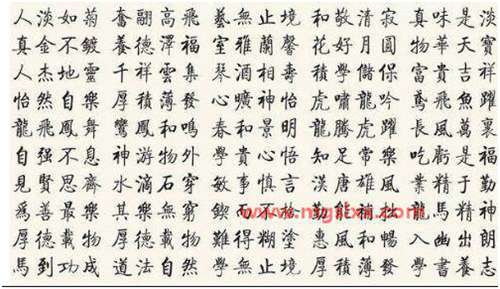 人淡如菊 奮翮高飛 藝無止境 和敬清寂 真味是淡
真金不鍍 養德澤福 室雅蘭馨 花好月圓 物華天寶
人杰地靈 千祥雲集 琴酒相壽 積學儲保 富貴吉祥
怡然自樂 厚積薄發 心曠神怡 虎嘯龍吟 鳶飛魚躍
龍飛鳳舞 鸞鳳和鳴 春和景明 龍騰虎躍 長風萬裏
自强不息 神游物外 學貴心悟 知足常樂 吃虧是福
見賢思齊 水滴石穿 敏事慎言 漢唐雄風 業精于勤
爲善最樂 其樂無窮 鍥而不 勤能補 龍馬精神
厚德載物 厚德載物 難得糊塗 惠風和暢 入幽出朗
馬到功成 道法自然 學無止境 厚積薄發 學書養志